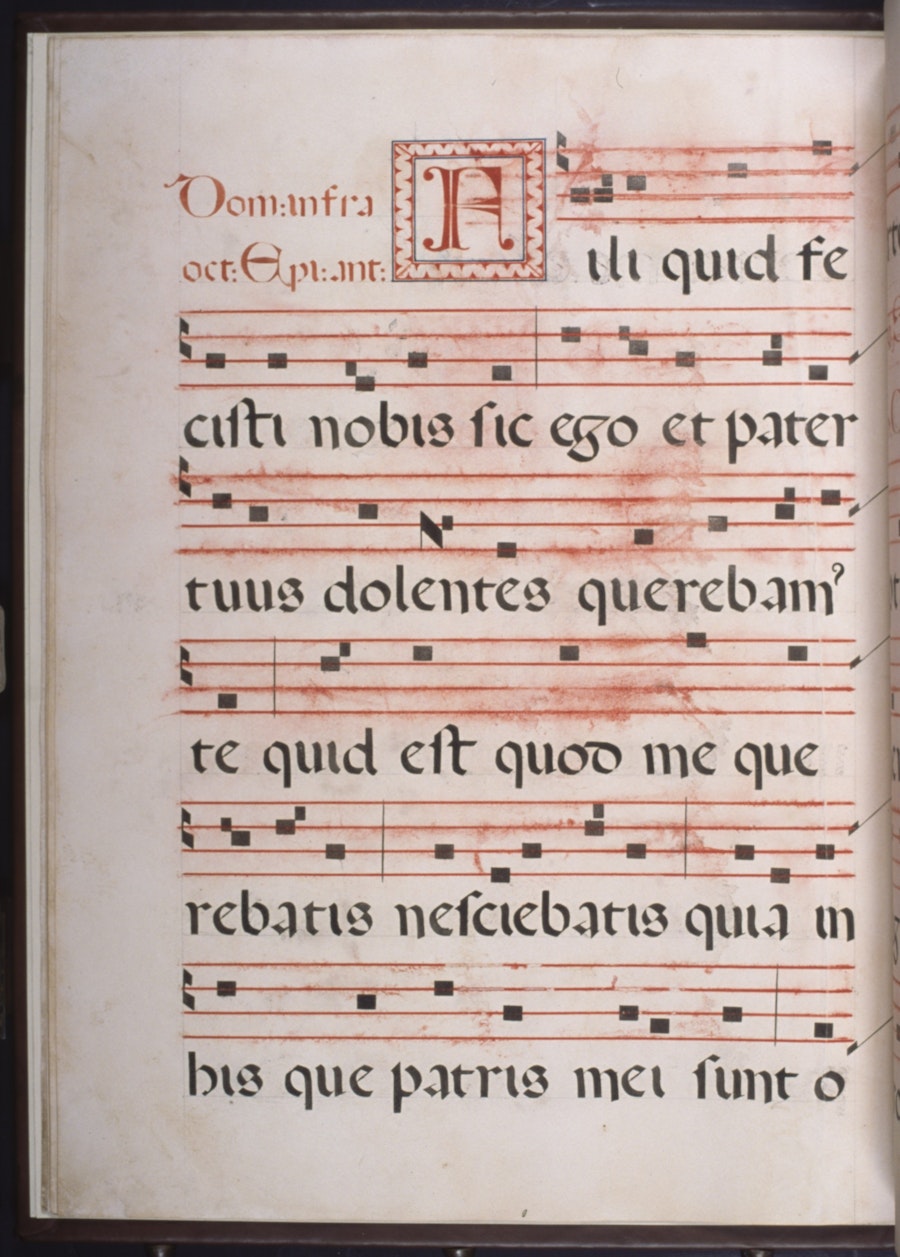 Dom: infra
oct: Epi: ant:
F ili quid fe
ciſti nobis ſic ego et pater
tuus dolentes querebamꝰ
te quid eſt quod me que
rebatis neſciebatis quia in
his que patris mei ſunt o